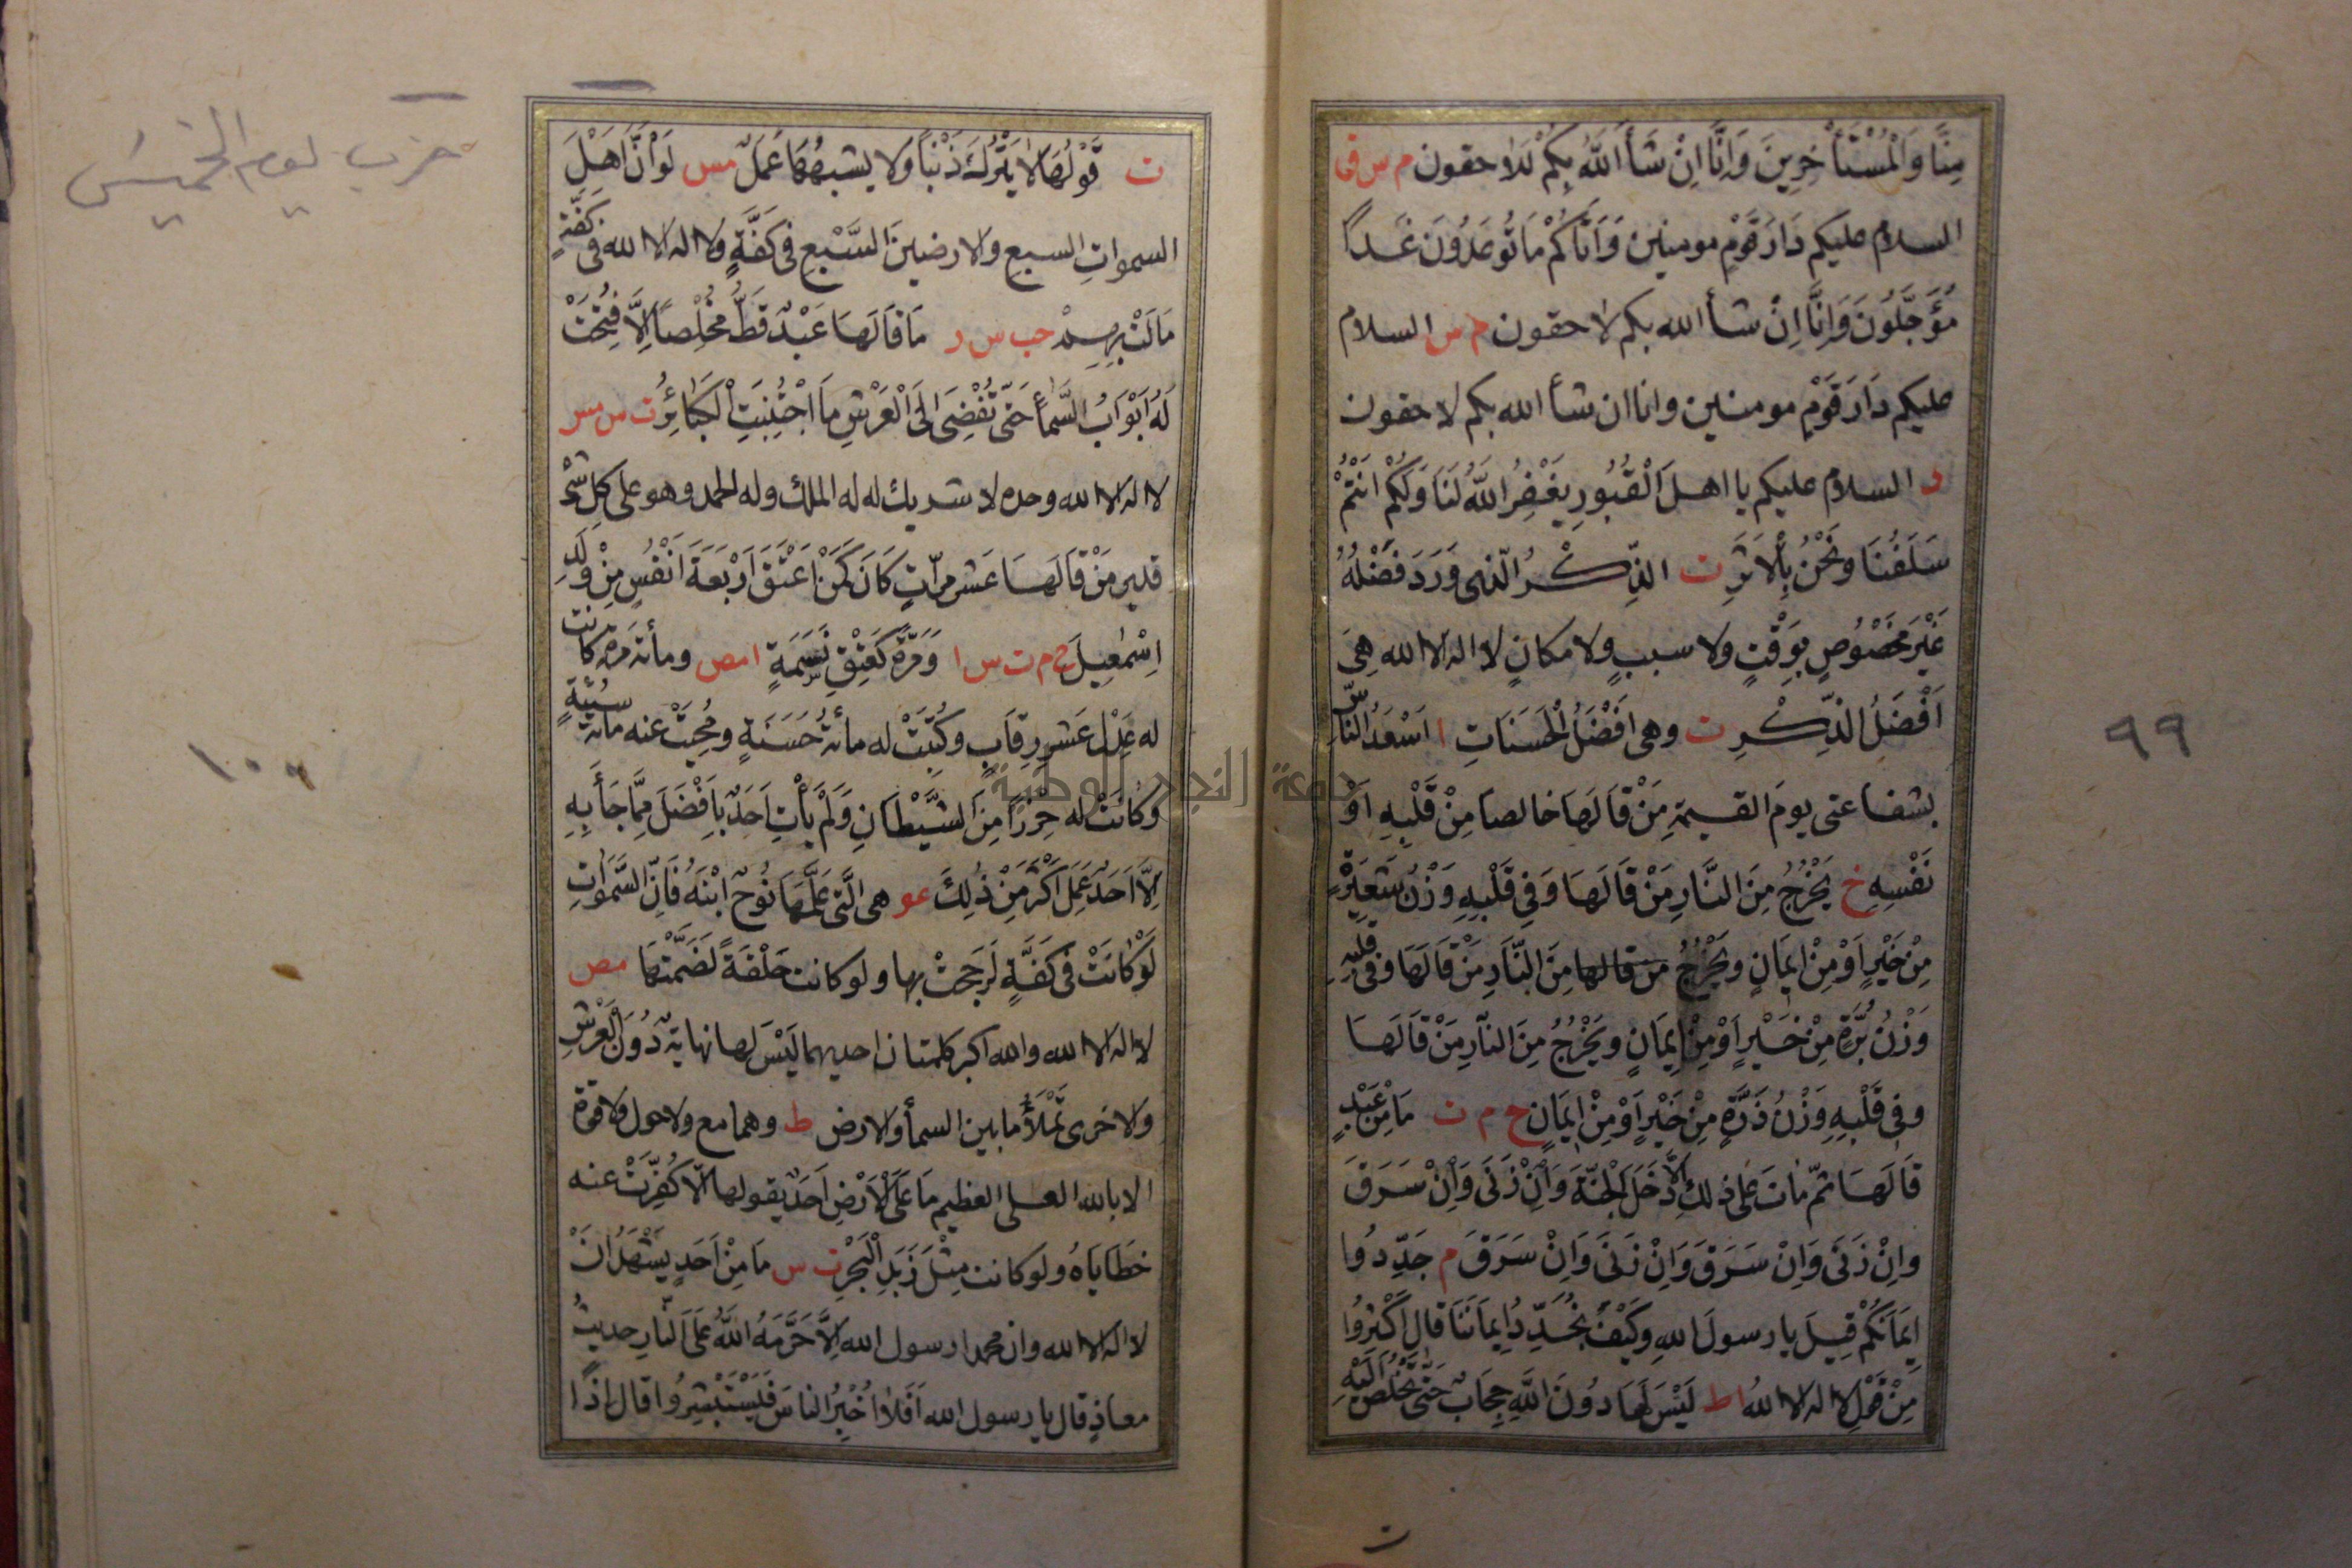 مِنَّا وَالْمُسْتَأْخِرِينَ وَاِنَّا اِنْ شَأَ اللّٰهُ بِكُمْ لَلَاحقون م س ق
السلام عليكم دَارَ قَوْمٍ مومنين وَاَتَاكُمْ مَا تُوعَدُونَ غَدًا
مُؤَجَّلُونَ وَاِنَّا اِنْ شأ الله بكم لاحقون م س السلام
عليكم دَارَ قَوْمٍ مومنين وانا ان شأ الله بكم لاحقون
د السلام عليكم يا اهلَ الْقُبُورِ يَغْفِرُ اللّٰهُ لَنَا وَلَكُمْ اَنْتُمْ
سَلَفُنَا وَنَحْنُ بِالْاَثَرِ ت الذِّكْرُ الَّذِى وَرَدَ فَضْلُهُ
غَيْرَ مَخْصُوصٍ بِوَقْتٍ ولا سببٍ ولا مكانٍ لا اله الا الله هِىَ
اَفْضَلُ الذِّكْرِ ت وهى اَفْضَلُ الْحَسَنَاتِ ا اَسْعَدُ النَّاسِ
بشفاعتى يومَ القيمة مَنْ قَالَهَا خالصا مِنْ قَلْبِهِ اَوْ
نَفْسِهِ خ يَخْرُجُ مِنَ النَّارِ مَنْ قَالَهَا وَفِى قَلْبِهِ وَزْنُ شَعِيرَةٍ
مِنْ خَيْرٍ اَوْ مِنْ اِيمَانٍ وَيَخْرُجُ من قالها مِنَ النَّارِ مَنْ قَالَهَا وَفى قَلْبِهِ
وَزْنُ بُرَّةٍ مِنْ خَيْرٍ اَوْ مِنْ اِيمَانٍ وَيَخْرُجُ مِنَ النَّارِ مَنْ قَالَهَا
وفى قَلْبِهِ وَزْنُ ذَرَّةٍ مِنْ خَيْرٍ اَوْ مِنْ اِيمَانٍ خ م ت مَا مِنْ عَبْدٍ
قَالَهَا ثمّ مات على ذلك اِلَّا دَخَلَ الْجَنَّةَ وَاِنْ زَنَى وَاِنْ سَرَقَ
وَاِنْ زَنَى وَاِنْ سَرَقَ وَاِنْ زَنَى وَاِنْ سَرَقَ م جَدِّدُوا
اِيمَانَكُمْ قِيلَ يا رسولَ اللهِ وَكَيْفَ نُجَدِّدُ اِيمَانَنَا قال اَكْثِرُوا
مِنْ قَوْلِ لا اله الا اللهُ ا ط لَيْسَ لَهَا دُونَ اللّٰهِ حِجَابٌ حَتَّى تَخْلُصَ اِلَيْهِ
٩٩
ن
حزب يوم الخميس
ت قَوْلُهَا لَا يَتْرُكُ ذَنْبًا وَلا يشبهُهَا عَمَلٌ مس لَوْ اَنَّ اَهْلَ
السموات السبع والارضينَ السَّبْعِ فى كَفَّةٍ ولا اله الا الله فى كَفَّةٍ
مَالَتْ بِهِمْ حب س ر مَا قَالَهَا عَبْدٌ قَطُّ مُخْلِصًا اِلَّا فُتِحَتْ
لَهُ اَبْوَابُ السَّمَأِ حَتَّى تُفْضِىَ اِلَى الْعَرْشِ مَا اجْتُنِبَتِ الْكَبَائِرُ ت س مس
لا اله الا الله وحده لا شريك له له الملك وله الحمد وهو على كل شَىْ
قدير مَنْ قَالَهَا عَشر مرّاتٍ كَانَ كَمَنْ اَعْتَقَ اَرْبَعَةَ اَنْفُسٍ مِنْ وَلَدِ
اِسْمٰعِيلَ خ م ت س ا وَمَرَّةً كَعِتْقِ نَسَمَةٍ ا مص ومأتةَ مَرَّةٍ كانت
له عِدْلَ عَشرِ رِقَابٍ وكُتِبَتْ له مأتةُ حَسَنَةٍ ومُحِيَتْ عنه مأتة سَيِّئَةٍ
وَكَانَتْ له حِرْزًا مِنَ الشَّيْطَانِ وَلَمْ يَأْتِ اَحَدٌ بِاَفْضَلَ مِمَّا جَأَ بِهِ
اِلَّا اَحَدٌ عَمِلَ اَكْثَرَ مِنْ ذٰلِكَ عو هى الَّتِى عَلَّمَهَا نُوحٌ ابْنَهُ فَاِنَّ السَّمَوَاتِ
لَوْ كَانَتْ فى كَفَّةٍ لَرَجَحَتْ بها ولو كانت حَلْقَةً لَضَمَّتْهَا مص
لا اله الا الله والله اكبر كلمتان احديهما لَيْسَ لها نهايةٌ دُونَ الْعَرْشِ
ولاخرى تَمْلَأُ ما بين السمأ والارض ط وهما مع ولا حول ولا قوة
الا بالله العلى العظيم مَا عَلَى الْاَرْضِ اَحَدٌ يقولها الّا كُفِّرَتْ عنه
خَطَايَاهُ ولو كانت مِثْلَ زَبَدِ الْبَحْرِ ت س مَا مِنْ اَحَدٍ يَشْهَدُ اَنْ
لا اله الا الله وان محمدا رسول الله اِلَّا حَرَّمَهُ اللّٰهُ عَلَى النَّارِ حديثُ
معاذٍ قال يا رسول الله اَفَلَا اُخْبِرُ الناسَ فَيَسْتَبْشِرُوا قال اِذًا
١٠٠
جامعة النجاح الوطنية